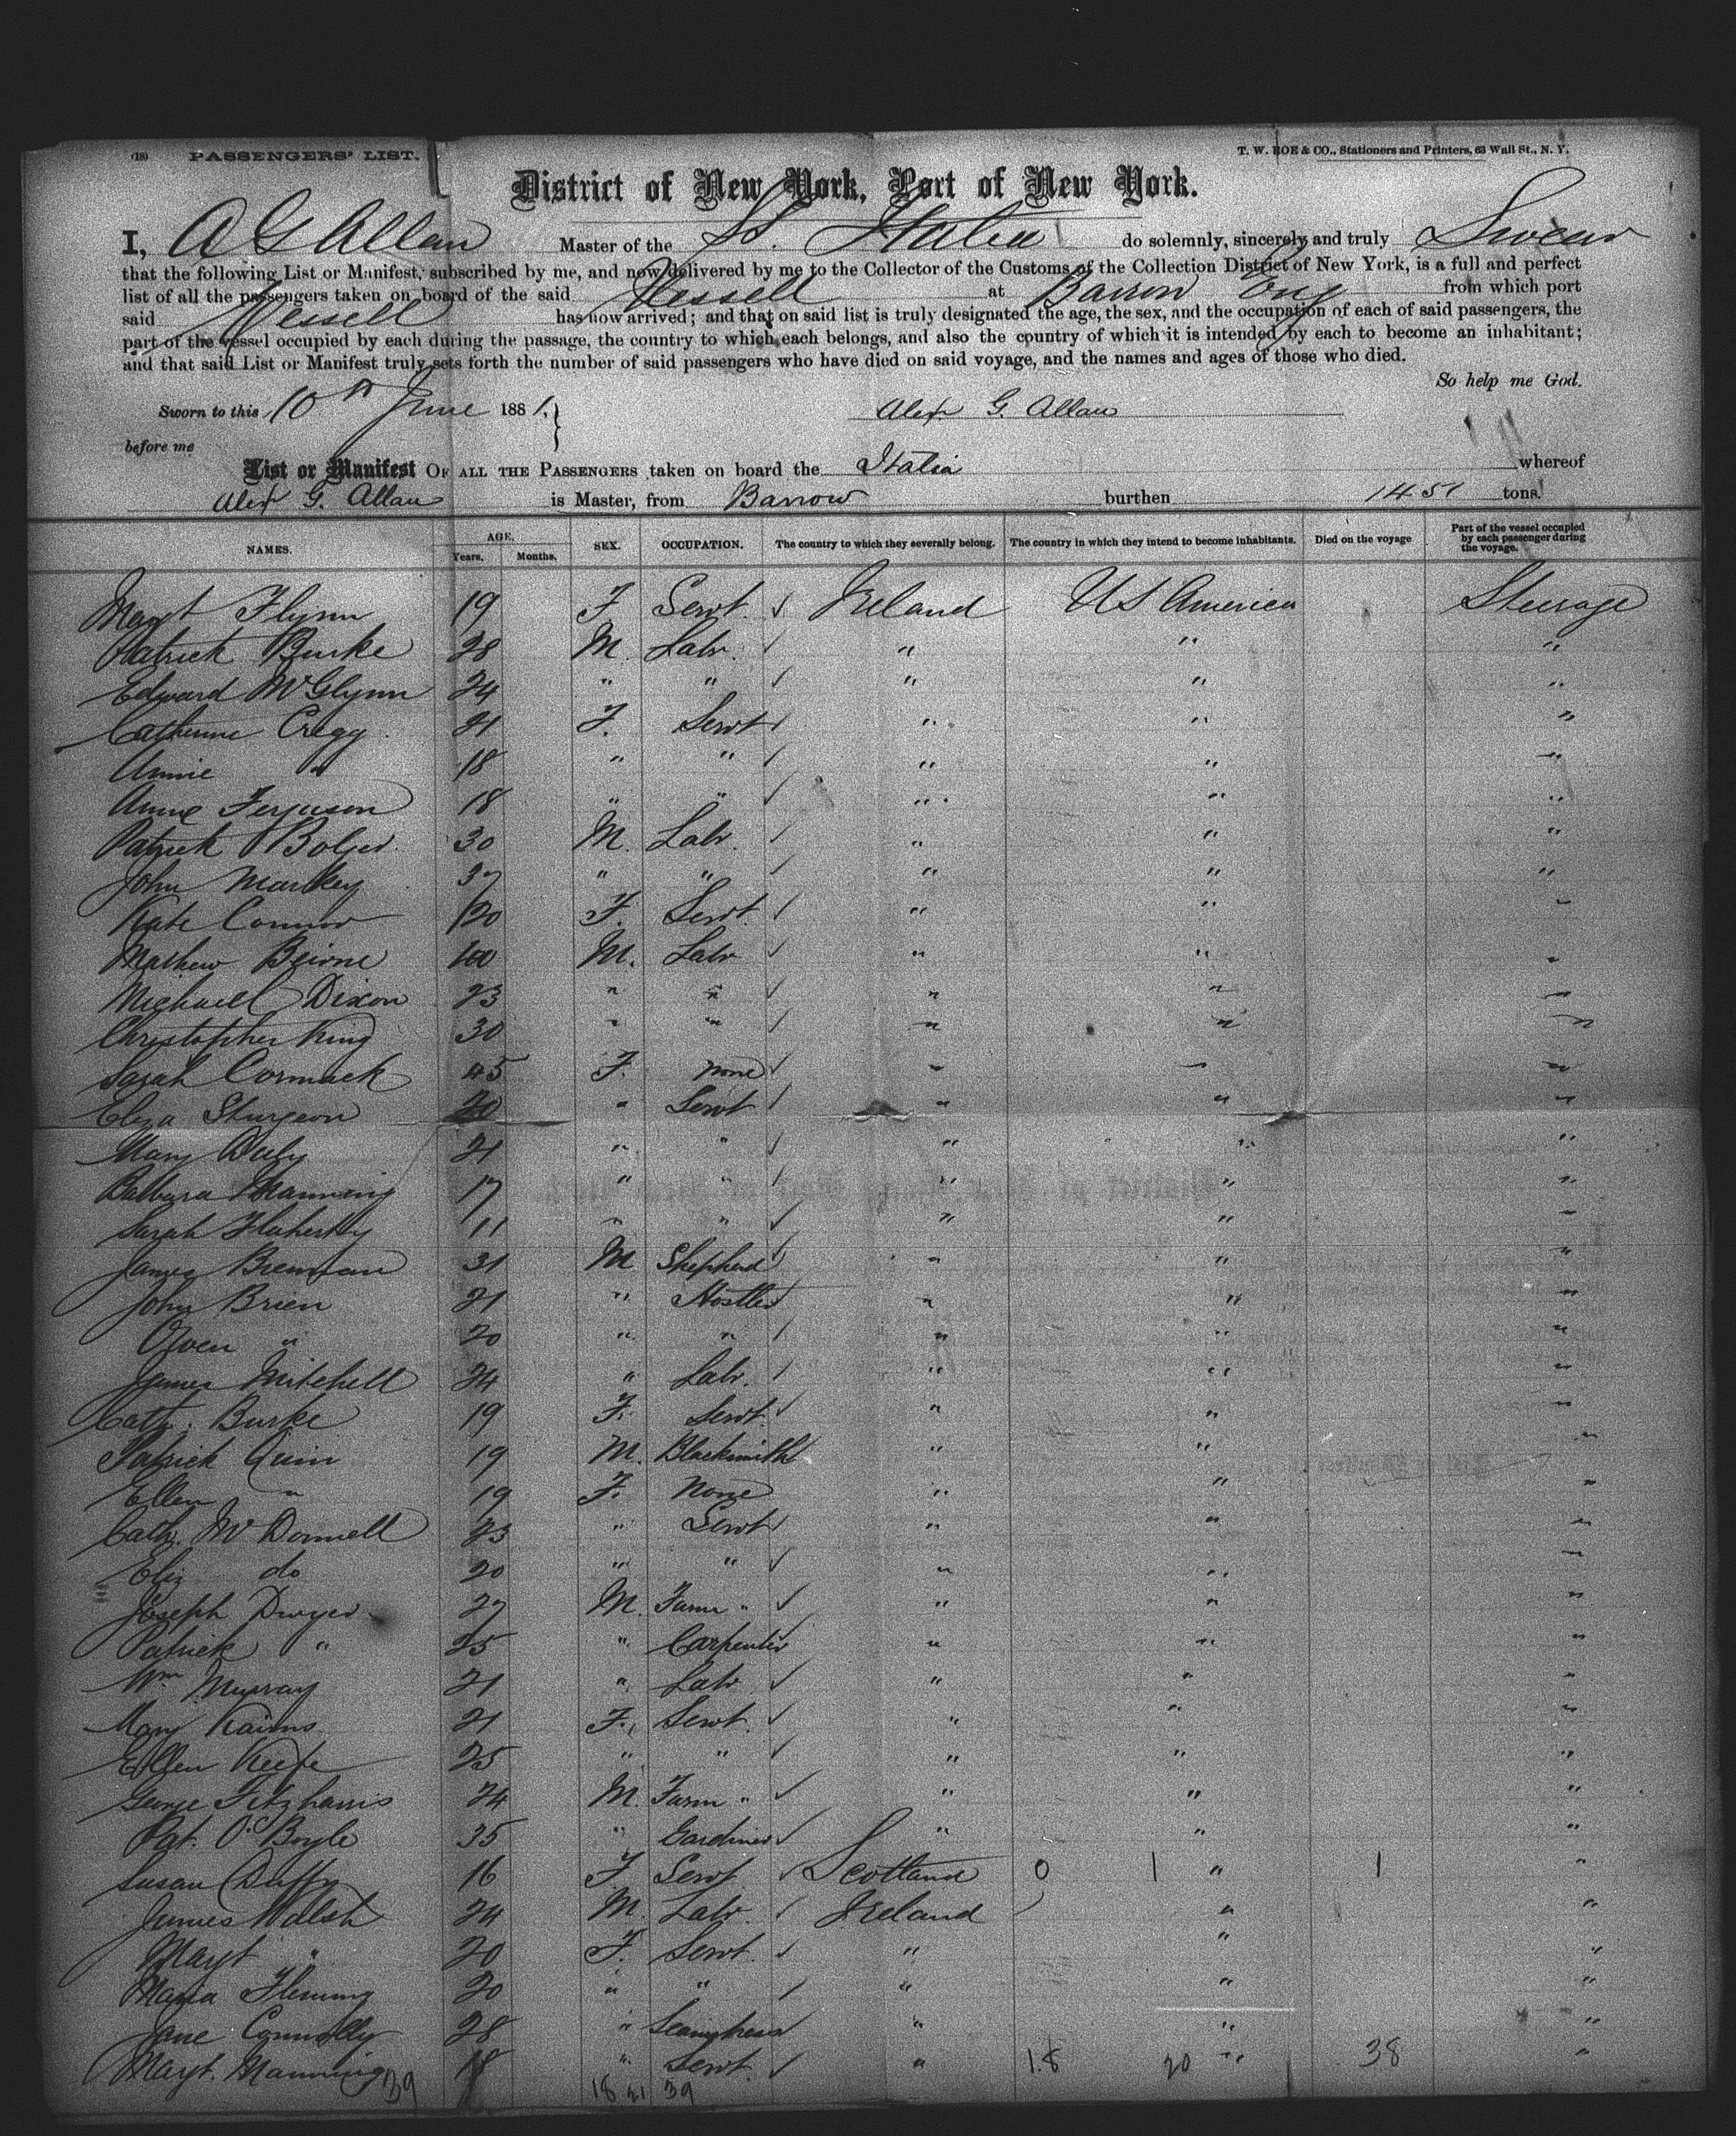 (18) PASSENGERS' LIST.
T. W. ROE & CO., Stationers and Printers, 63 Wall St., N. Y.
District of New York, Port of New York.
I, A G Allan Master of the SS. Italia do solemnly, sincerely and truly Swear
that the following List or Manifest, subscribed by me, and now delivered by me to the Collector of the Customs of the Collection District of New York, is a full and perfect
list of all the passengers taken on board of the said Vessell at Barrow Eng from which port
said Vessell has now arrived; and that on said list is truly designated the age, the sex, and the occupation of each of said passengers, the
part of the vessel occupied by each during the passage, the country to which each belongs, and also the country of which it is intended by each to become an inhabitant;
and that said List or Manifest truly sets forth the number of said passengers who have died on said voyage, and the names and ages of those who died.
So help me God.
Sworn to this 10th June 1881. Alexr G. Allan
before me
List or Manifest OF ALL THE PASSENGERS taken on board the Italia whereof
Alexr G. Allan is Master, from Barrow burthen 1451 tons.
NAMES. AGE. Years. Months. SEX. OCCUPATION. The country to which they severally belong. The country in which they intend to become inhabitants. Died on the voyage Part of the vessel occupied by each passenger during the voyage.
Margt Flynn 19 F Servt. ✓ Ireland US America Steerage
Patrick Burke 28 M. Labr. ✓ " " "
Edward McGlynn 24 " " ✓ " " "
Catherine Cregg 21 F. Servt ✓ " " "
Annie " 18 " " ✓ " " "
Anne Ferguson 18 " " ✓ " " "
Patrick Bolger 30 M. Labr. ✓ " " "
John Markey 37 " " ✓ " " "
Kate Connor 20 F. Servt. ✓ " " "
Mathew Beirne 40 M. Labr ✓ " " "
Michael Dixon 23 " " ✓ " " "
Christopher King 30 " " ✓ " " "
Sarah Cormack 45 F. None ✓ " " "
Eliza Sturgeon 20 " Servt ✓ " " "
Mary Daly 21 " " ✓ " " "
Barbara Manning 17 " " ✓ " " "
Sarah Flaherty 11 " " ✓ " " "
James Brennan 31 M Shepherd ✓ " " "
John Brien 21 " Hostler ✓ " " "
Owen " 20 " " ✓ " " "
James Mitchell 24 " Labr. ✓ " " "
Cath. Burke 19 F. Servt. ✓ " " "
Patrick Quin 19 M. Blacksmith ✓ " " "
Ellen " 19 F. None " " "
Cath. McDonnell 23 " Servt ✓ " " "
Eliz do 20 " " ✓ " " "
Joseph Dwyer 27 M. Farm " ✓ " " "
Patrick " 25 " Carpenter ✓ " " "
Wm Murray 21 " Labr ✓ " " "
Mary Kairns 21 F. Servt. ✓ " " "
Ellen Keefe 25 " " ✓ " " "
George Fitzharris 24 M. Farm " ✓ " " "
Pat. O'Boyle 35 " Gardiner ✓ " " "
Susan Duffy 16 F Servt. ✓ Scotland 0 1 " 1 "
James Walsh 24 M. Labr. ✓ Ireland " "
Margt " 20 F. Servt. ✓ " " "
Maria Fleming 20 " " ✓ " " "
Jane Connolly 28 " Seamstress ✓ " " "
Margt. Manning 18 " Servt. ✓ " 18 20 " 38 "
39 18 21 39